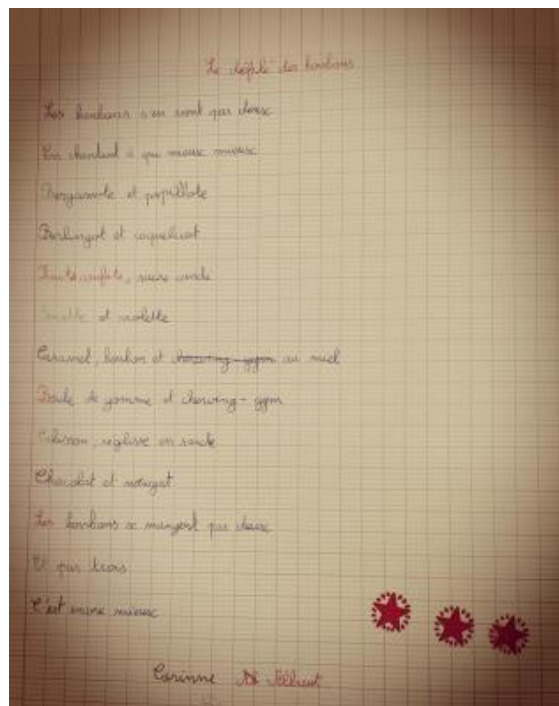 Le défilé des bonbons
Les bonbons s'en vont par deux
En chantant à qui mieux mieux
Bergamote et papillote
Berlingot et coquelicot
Fruits confits, sucre candi
Sucette et violette
Caramel, bonbon et chewing-gym au miel
Boule de gomme et chewing-gym
Calisson, réglisse en roule
Chocolat et nougat
Les bonbons se mangent par deux
Et par trois
C'est encore mieux
Corinne Albaut